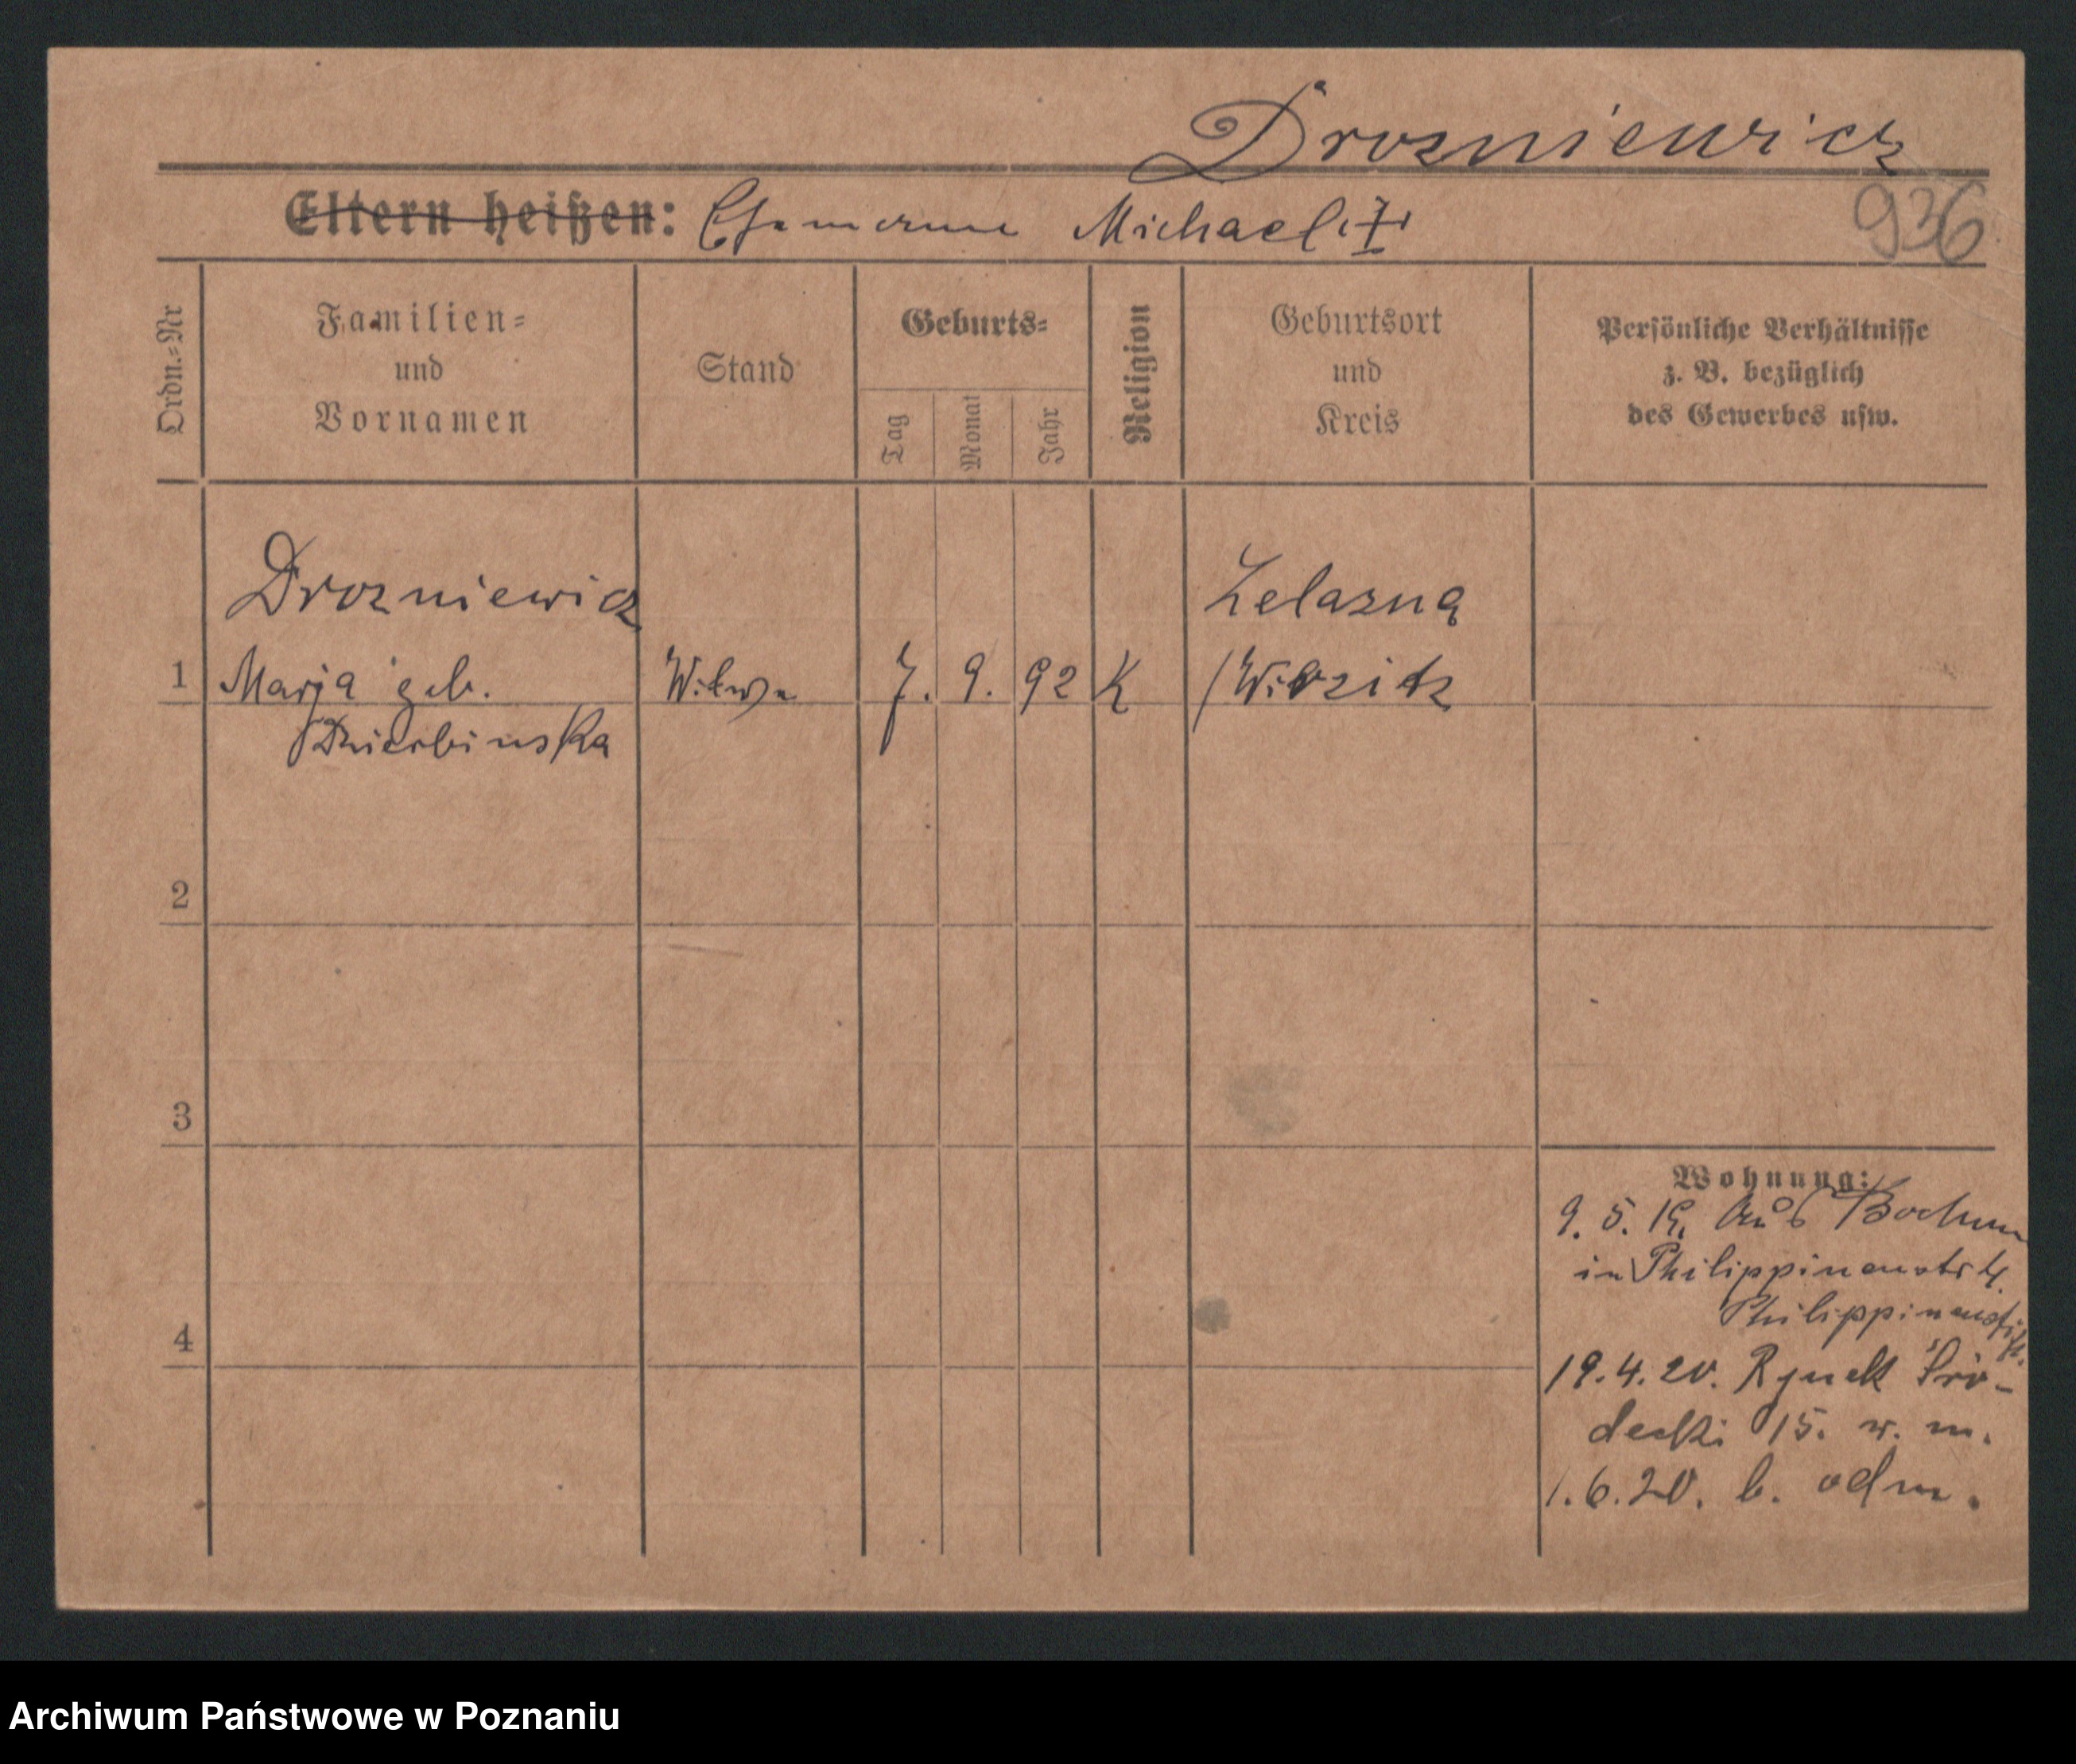 Drozniewicz
Eltern heißen: Ehemann Michael
936
Ordn.=Nr
Familien=
und
Vornamen
Stand
Geburts=
Tag
Monat
Jahr
Religion
Geburtsort
und
Kreis
Persönliche Verhältnisse
z. B. bezüglich
des Gewerbes usw.
1
Drozniewicz
Marja geb.
Dzierbinska
Witwe
7. 9. 92
K
Zelazna
/Wirsitz
2
3
4
Wohnung:
9. 5. 19. aus Bochum
in Philippinenstr 4.
Philippinenstift.
19. 4. 20. Rynek Śró-
decki 15. w. m.
1. 6. 20. b. odm.
Archiwum Państwowe w Poznaniu